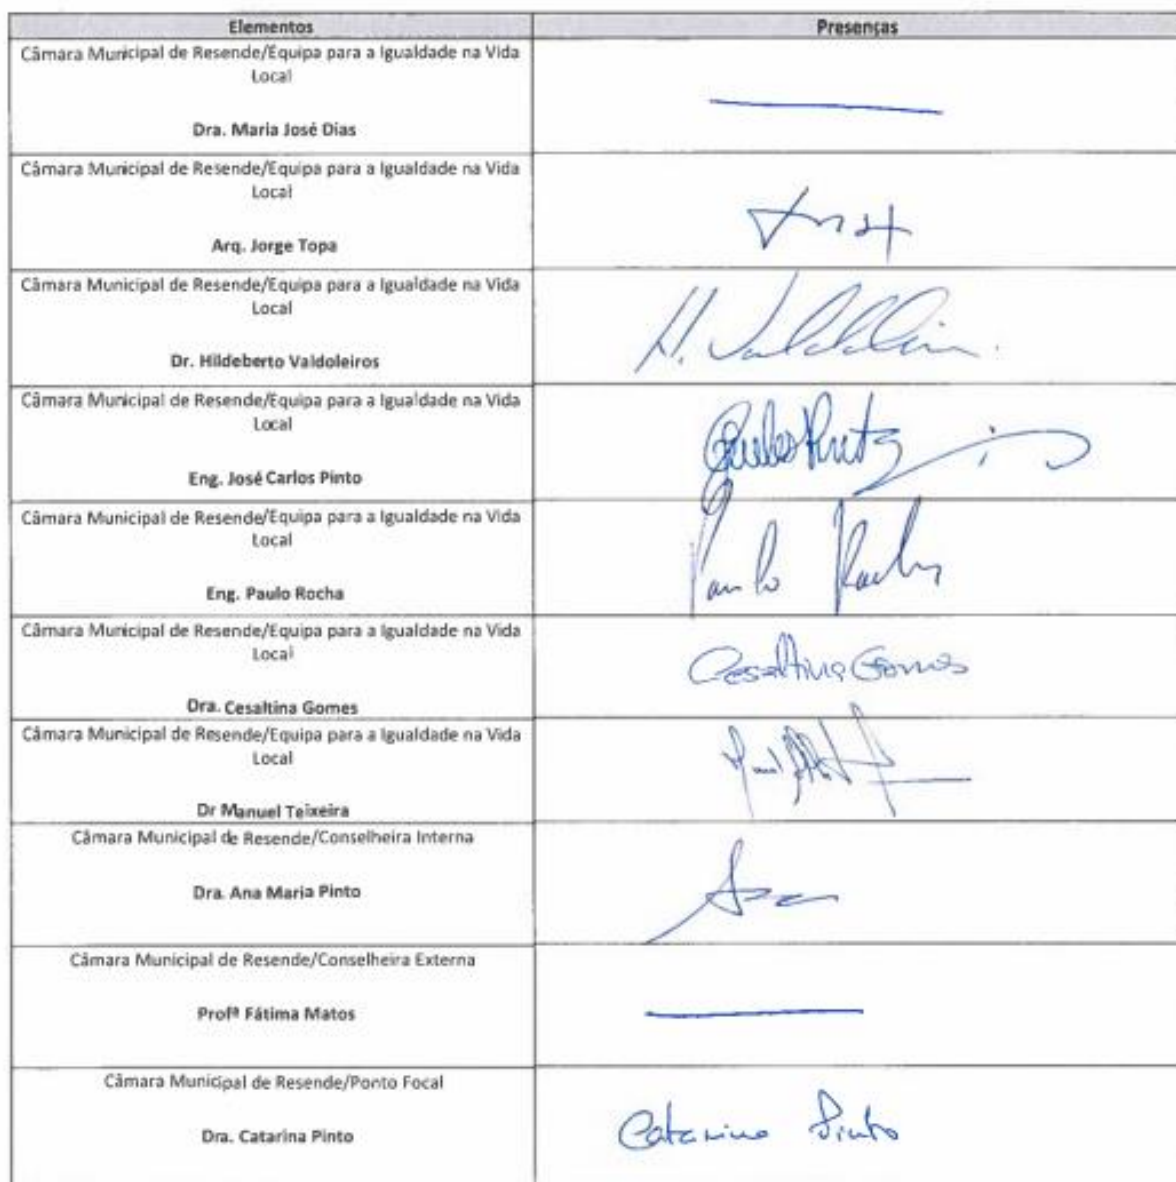 Elementos Presenças
Câmara Municipal de Resende/Equipa para a Igualdade na Vida
Local
Dra. Maria José Dias
Câmara Municipal de Resende/Equipa para a Igualdade na Vida
Local
Arq. Jorge Topa
Câmara Municipal de Resende/Equipa para a Igualdade na Vida
Local
Dr. Hildeberto Valdoleiros
H.
Câmara Municipal de Resende/Equipa para a Igualdade na Vida
Local
Eng. José Carlos Pinto
Câmara Municipal de Resende/Equipa para a Igualdade na Vida
Local
Eng. Paulo Rocha
Paulo Rocha
Câmara Municipal de Resende/Equipa para a Igualdade na Vida
Local
Dra. Cesaltina Gomes
Cesaltina Gomes
Câmara Municipal de Resende/Equipa para a Igualdade na Vida
Local
Dr Manuel Teixeira
Câmara Municipal de Resende/Conselheira Interna
Dra. Ana Maria Pinto
Câmara Municipal de Resende/Conselheira Externa
Profª Fátima Matos
Câmara Municipal de Resende/Ponto Focal
Dra. Catarina Pinto
Catarina Pinto